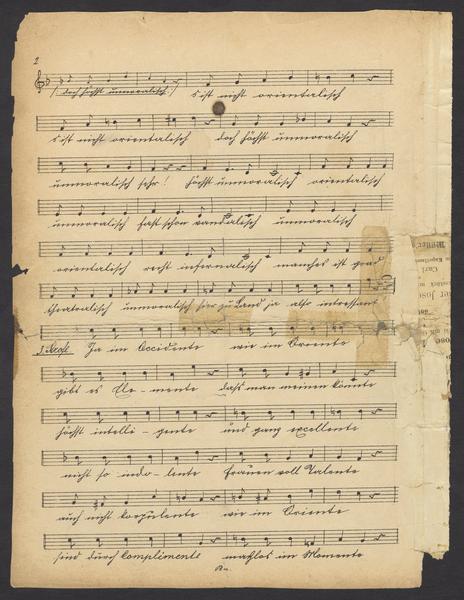 2
doch höchst unmoralisch s'ist nicht orientalisch
s'ist nicht orientalisch doch höchst unmoralisch
unmoralisch sehr! höchst unmoralisch orientalisch
unmoralisch fast schon vandalisch unmoralisch
orientalisch recht infernalisch manches ist grad
theatralisch unmoralisch hier zu Land ja also interessant
Ja im Occidente wie im Oriente
gibt es Ele-mente dass man meinen könnte
höchst intelli-gente und ganz excellente
nicht so indo-lente Frauen voll Talente
auch nicht korpulente wie im Oriente
sind durch Complimente maßlos im Momente